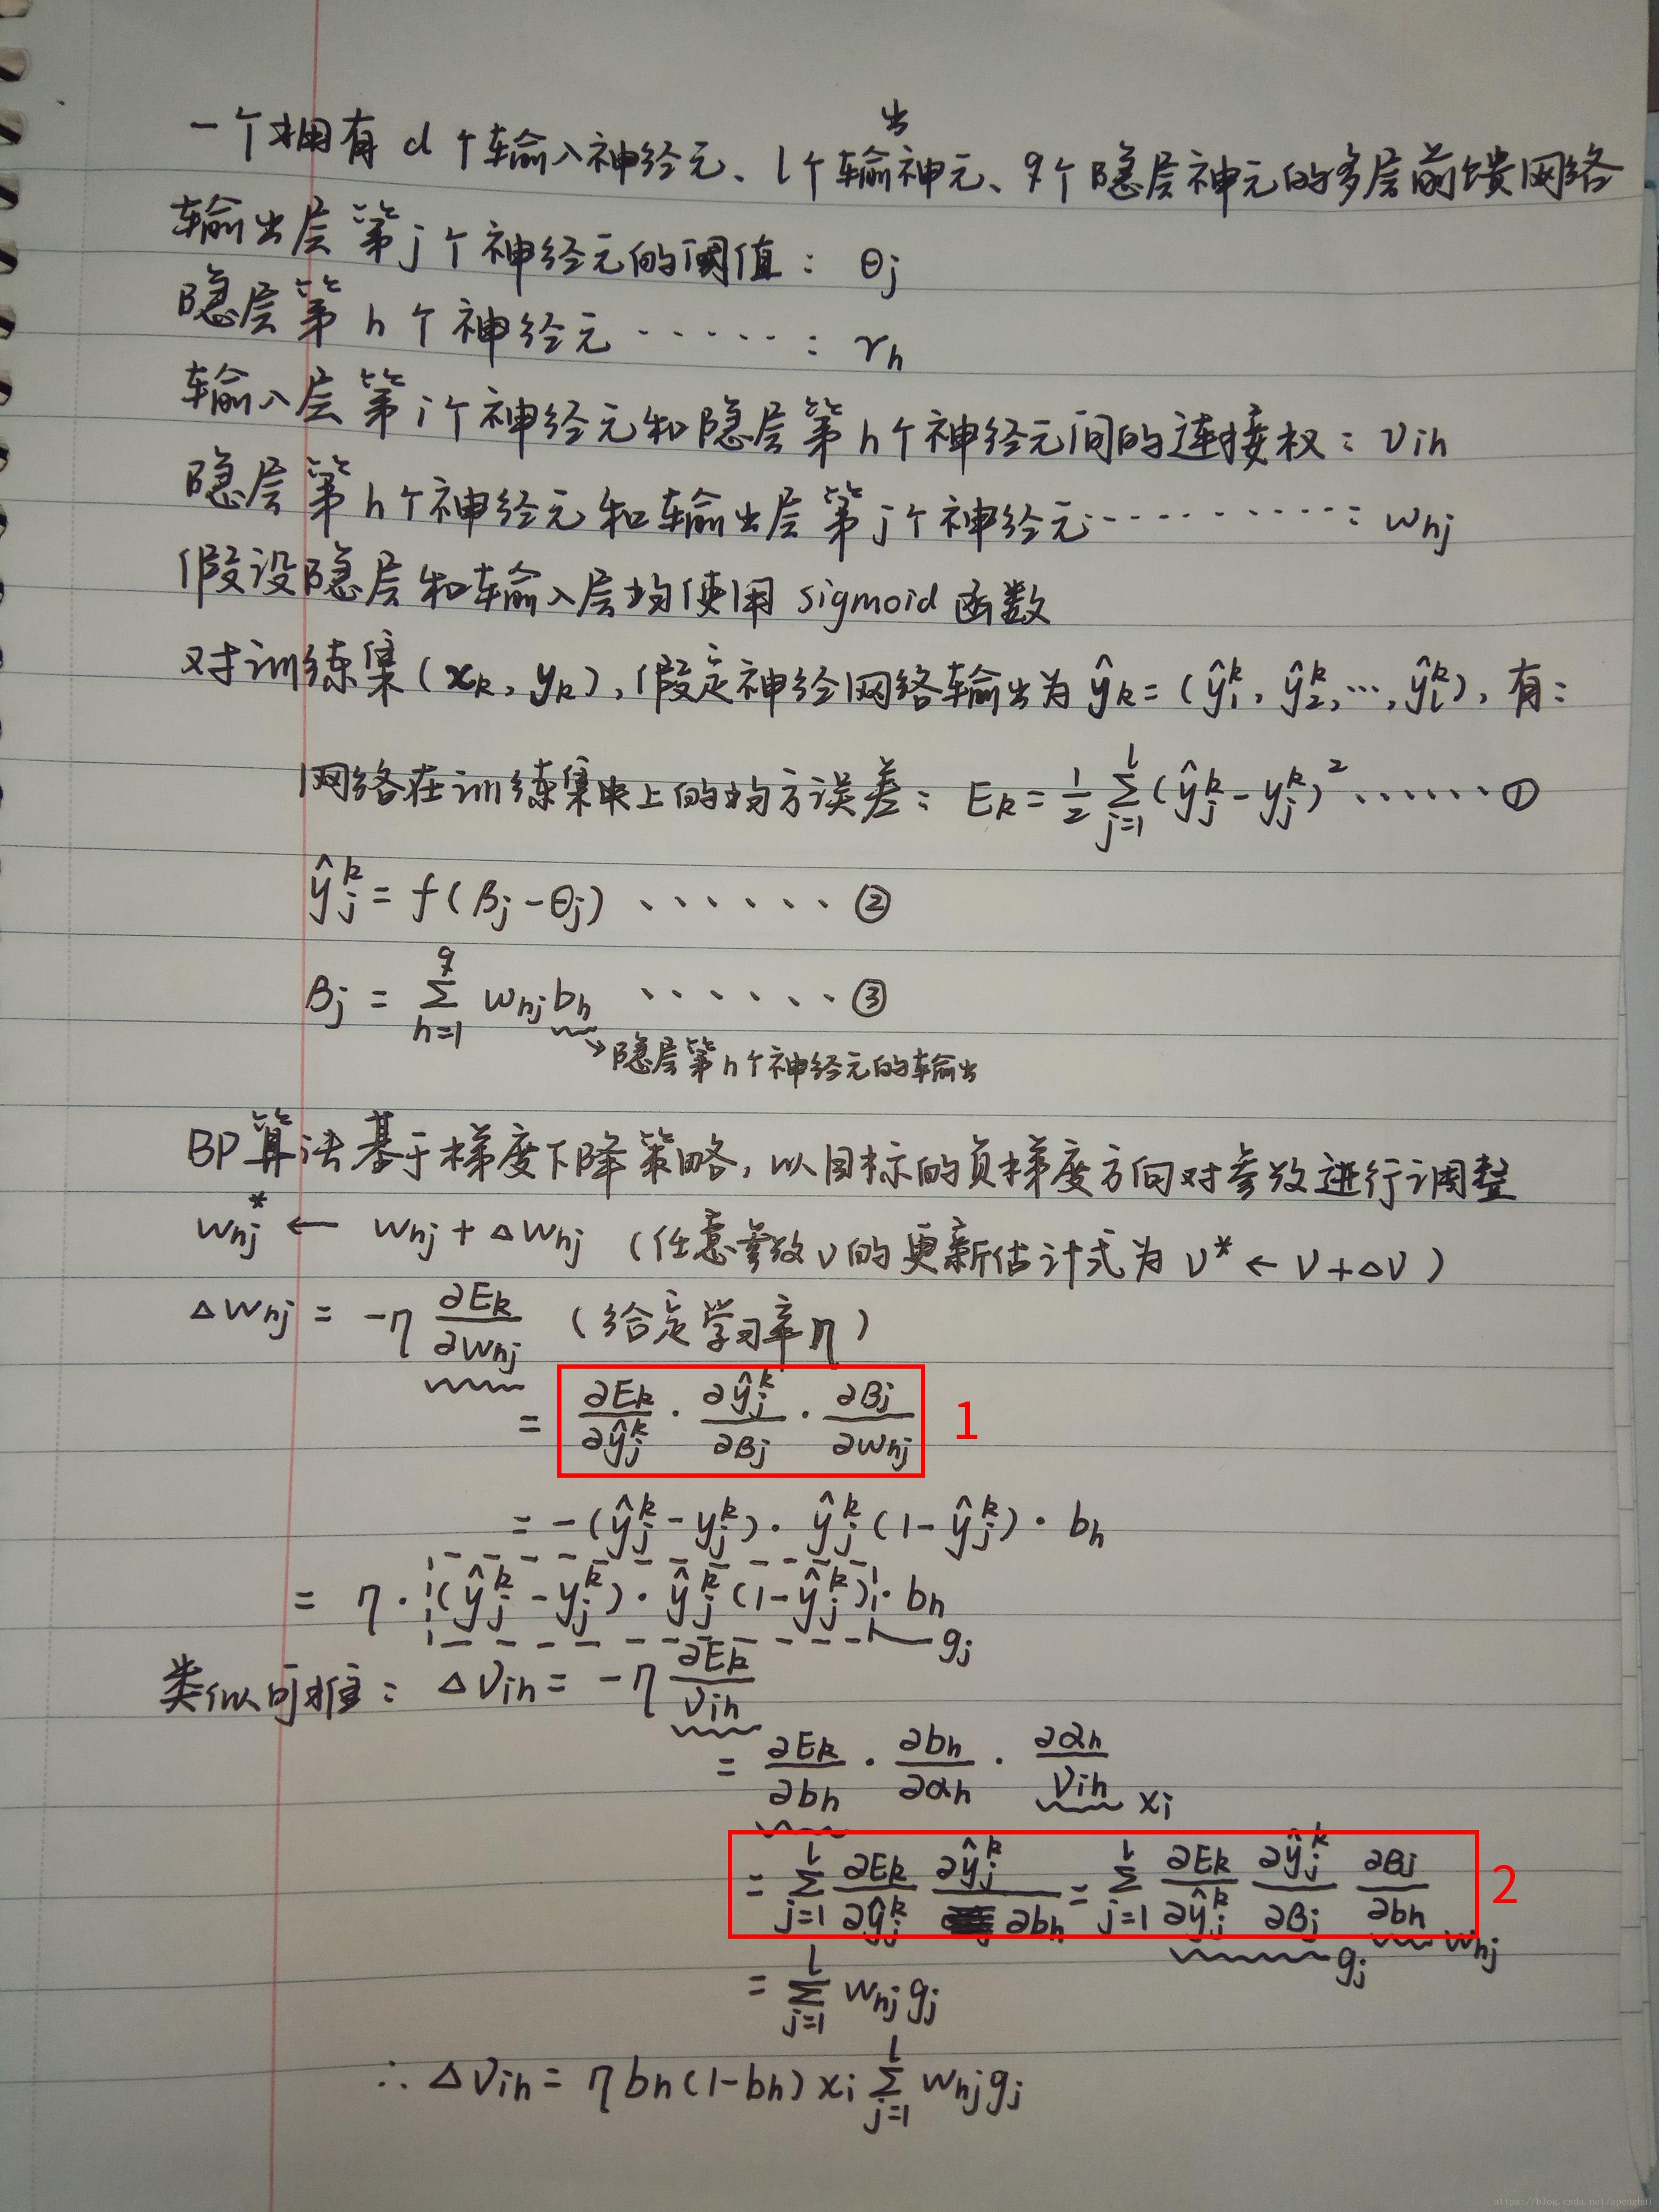 一个拥有 d 个输入神经元、l个输出神元、q个隐层神元的多层前馈网络
输出层第j个神经元的阈值：θj
隐层第 h 个神经元······：γh
输入层第i个神经元和隐层第h个神经元间的连接权：νih
隐层第h个神经元和输出层第j个神经元··········：whj
假设隐层和输入层均使用 sigmoid 函数
对训练集(xk, yk)，假定神经网络输出为 ŷk = (ŷ₁ᵏ, ŷ₂ᵏ, ..., ŷₗᵏ)，有：
网络在训练集中上的均方误差：Ek = 1/2 Σ_{j=1}^{l} (ŷjᵏ - yjᵏ)² ······①
ŷjᵏ = f(βj - θj) ······②
βj = Σ_{h=1}^{q} whj bh ······③
→隐层第h个神经元的输出
BP算法基于梯度下降策略，以目标的负梯度方向对参数进行调整
whj* ← whj + Δwhj （任意参数ν的更新估计式为 ν* ← ν + Δν）
Δwhj = -η ∂Ek/∂whj （给定学习率η）
= ∂Ek/∂ŷjᵏ · ∂ŷjᵏ/∂βj · ∂βj/∂whj 1
= -(ŷjᵏ - yjᵏ) · ŷjᵏ(1 - ŷjᵏ) · bh
= η · (ŷjᵏ - yjᵏ) · ŷjᵏ(1 - ŷjᵏ) · bh
gj
类似可推：Δνih = -η ∂Ek/νih
= ∂Ek/∂bh · ∂bh/∂αh · ∂αh/νih xi
= Σ_{j=1}^{l} ∂Ek/∂ŷjᵏ ∂ŷjᵏ/∂bh = Σ_{j=1}^{l} ∂Ek/∂ŷjᵏ ∂ŷjᵏ/∂βj ∂βj/∂bh 2
gj whj
= Σ_{j=1}^{l} whj gj
∴ Δνih = η bh(1 - bh) xi Σ_{j=1}^{l} whj gj
https://blog.csdn.net/spenghui